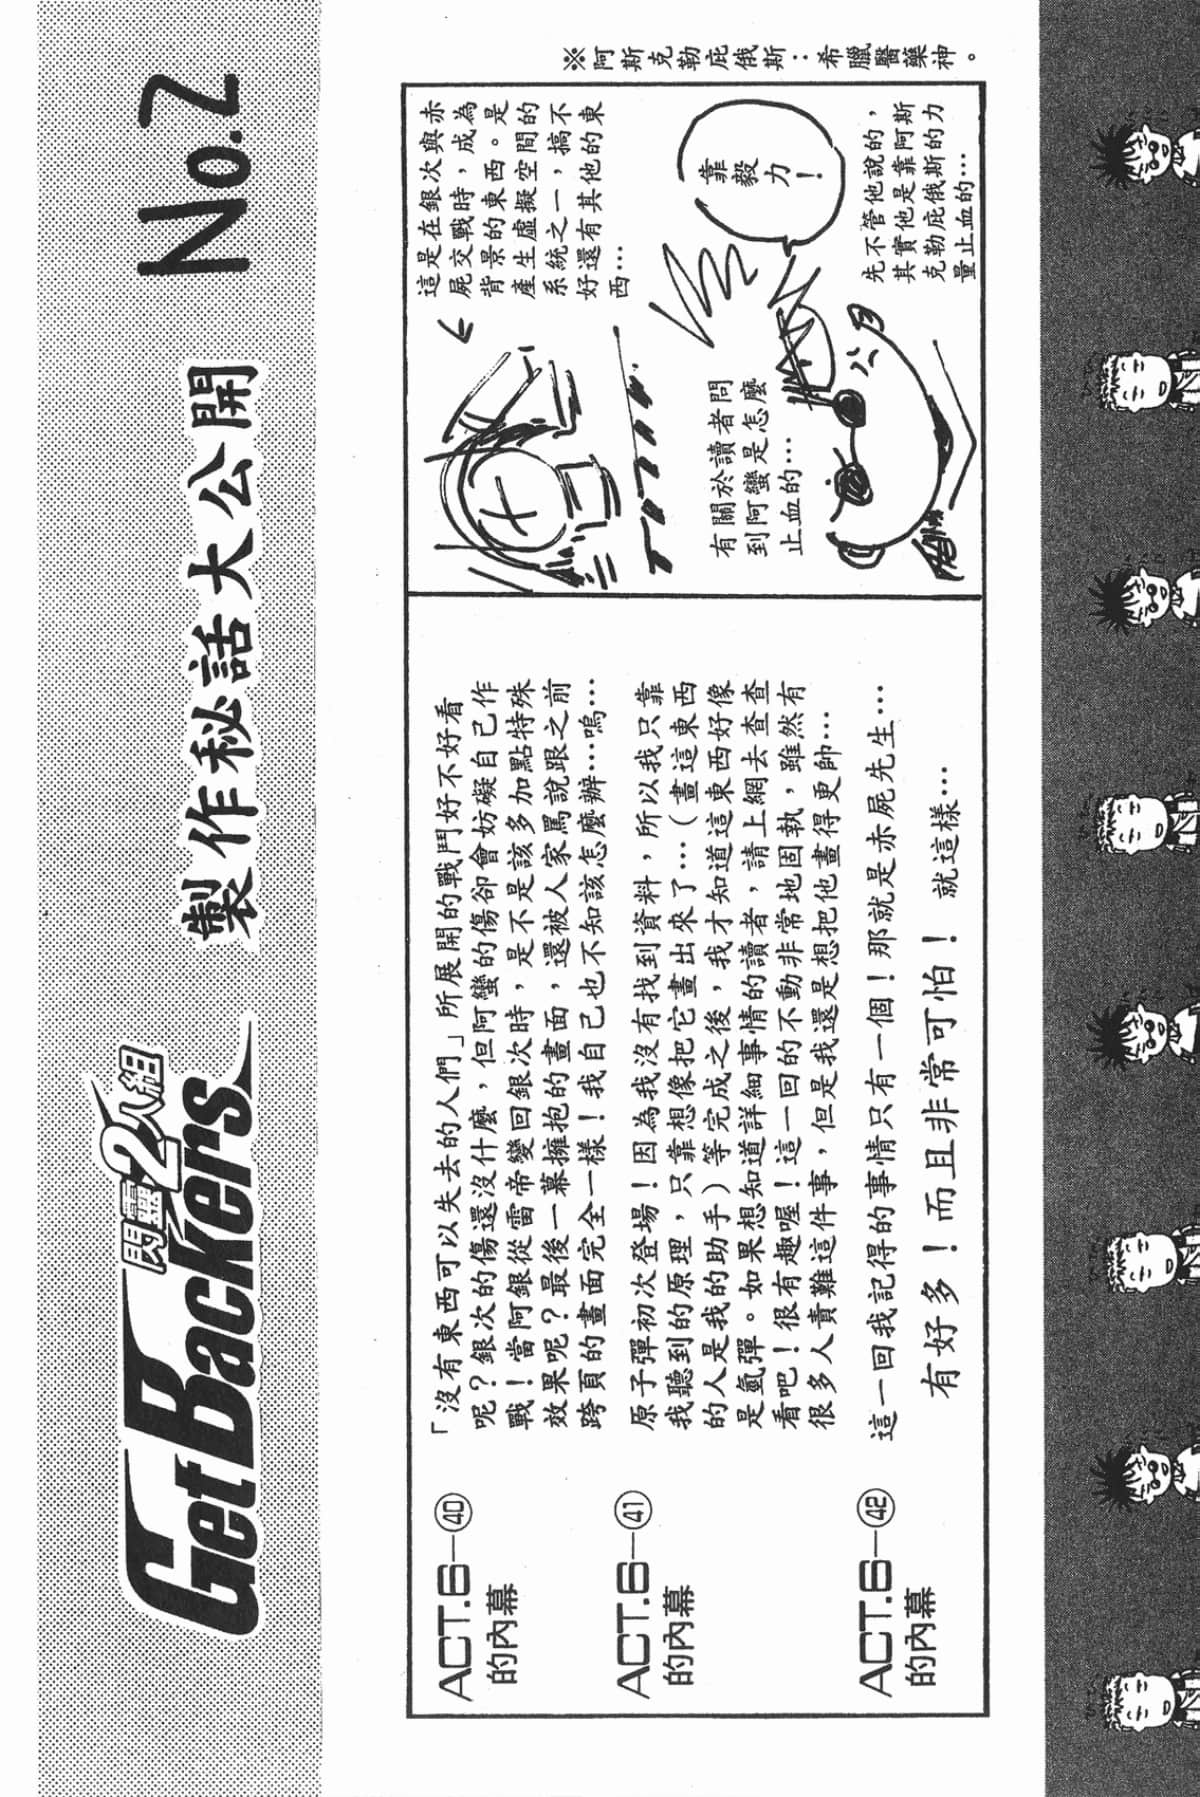 閃靈2人組
GetBackers
製作秘話大公開 No.2
ACT.6—㊵
的內幕
「沒有東西可以失去的人們」所展開的戰鬥好不好看
呢?銀次的傷還沒什麼,但阿蠻的傷卻會妨礙自己作
戰!當阿銀從雷帝變回銀次時,是不是該多加點特殊
效果呢?最後一幕擁抱的畫面,還被人家罵說跟之前
跨頁的畫面完全一樣!我自己也不知該怎麼辦…嗚…
ACT.6—㊶
的內幕
原子彈初次登場!因為我沒有找到資料,所以我只靠
我聽到的原理,只靠想像把它畫出來了…(畫這東西
的人是我的助手)等完成之後,我才知道這東西好像
是氫彈。如果想知道詳細事情的讀者,請上網去查查
看吧!很有趣喔!這一回的不動非常地固執,雖然有
很多人責難這件事,但是我還是想把他畫得更帥…
ACT.6—㊷
的內幕
這一回我記得的事情只有一個!那就是赤屍先生…
有好多!而且非常可怕! 就這樣…
這是在銀次與赤
屍交戰時,成為
背景的東西。是
產生虛擬空間的
系統之一,搞不
好還有其他的東
西…
有關於讀者問
到阿蠻是怎麼
止血的…
靠
毅
力
!
先不管他說的,
其實他是靠阿斯
克勒庇俄斯的力
量止血的…
※阿斯克勒庇俄斯:希臘醫藥神。